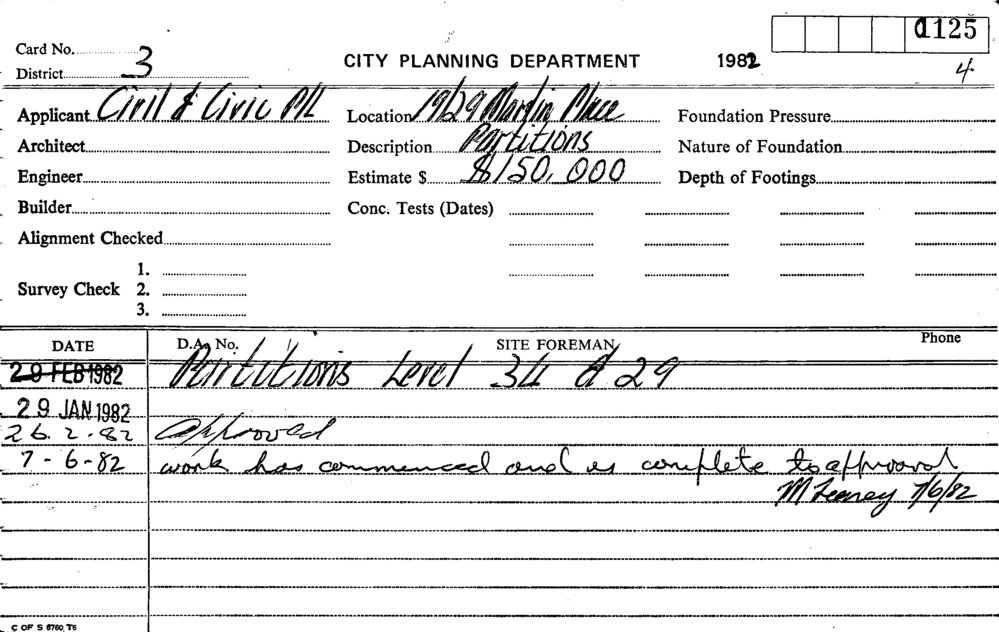 1125
Card No. 3
CITY PLANNING DEPARTMENT 1982
District 4
Applicant Civil & Civic P/L Location 19/29 Martin Place Foundation Pressure
Architect Description Partitions Nature of Foundation
Engineer Estimate $ $150,000 Depth of Footings
Builder Conc. Tests (Dates)
Alignment Checked
1.
Survey Check 2.
3.
DATE D.A. No. SITE FOREMAN Phone
29 FEB 1982 Partitions Level 34 & 29
29 JAN 1982
26.2.82 Approved
7-6-82 work has commenced and is complete to approval
M 7/6/82
C OF S 6760, T6